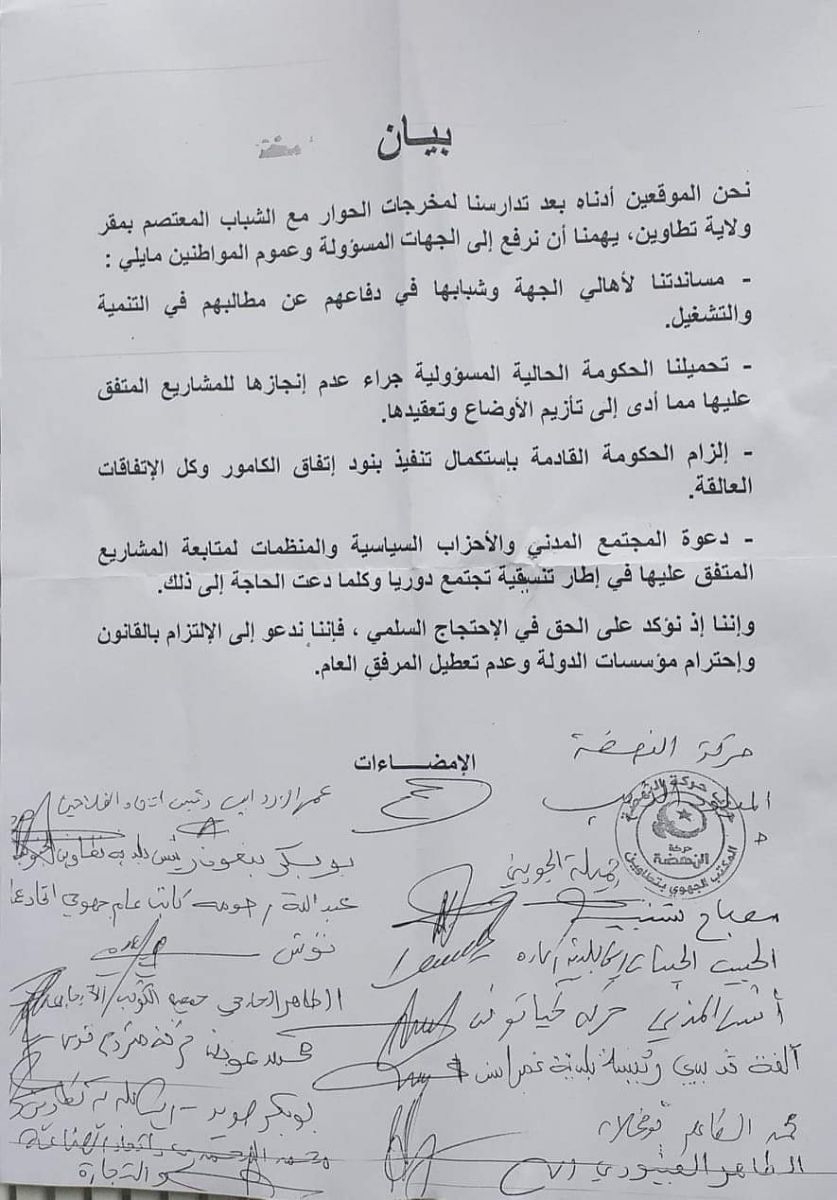 بيـان
نحن الموقعين أدناه بعد تدارسنا لمخرجات الحوار مع الشباب المعتصم بمقر
ولاية تطاوين، يهمنا أن نرفع إلى الجهات المسؤولة وعموم المواطنين مايلي :
- مساندتنا لأهالي الجهة وشبابها في دفاعهم عن مطالبهم في التنمية
والتشغيل.
- تحميلنا الحكومة الحالية المسؤولية جراء عدم إنجازها للمشاريع المتفق
عليها مما أدى إلى تأزيم الأوضاع وتعقيدها.
- إلزام الحكومة القادمة بإستكمال تنفيذ بنود إتفاق الكامور وكل الإتفاقات
العالقة.
- دعوة المجتمع المدني والأحزاب السياسية والمنظمات لمتابعة المشاريع
المتفق عليها في إطار تنسيقية تجتمع دوريا وكلما دعت الحاجة إلى ذلك.
وإننا إذ نؤكد على الحق في الإحتجاج السلمي ، فإننا ندعو إلى الإلتزام بالقانون
وإحترام مؤسسات الدولة وعدم تعطيل المرفق العام.
الإمضـــاءات
حركة النهضة
حزب حركة النهضة
حركة
النهضة
المكتب الجهوي بتطاوين
جميلة الجويني
مصباح شنيب
الحبيب
حركة
ألفة رئيسة بلدية غمراسن
محمد
الطاهر
عمر رئيس اتحاد الفلاحين
بوبكر رئيس بلدية تطاوين
عبد الله رحومة كاتب عام جهوي
الطاهر جمعية
بوبكر صويد
والتجارة